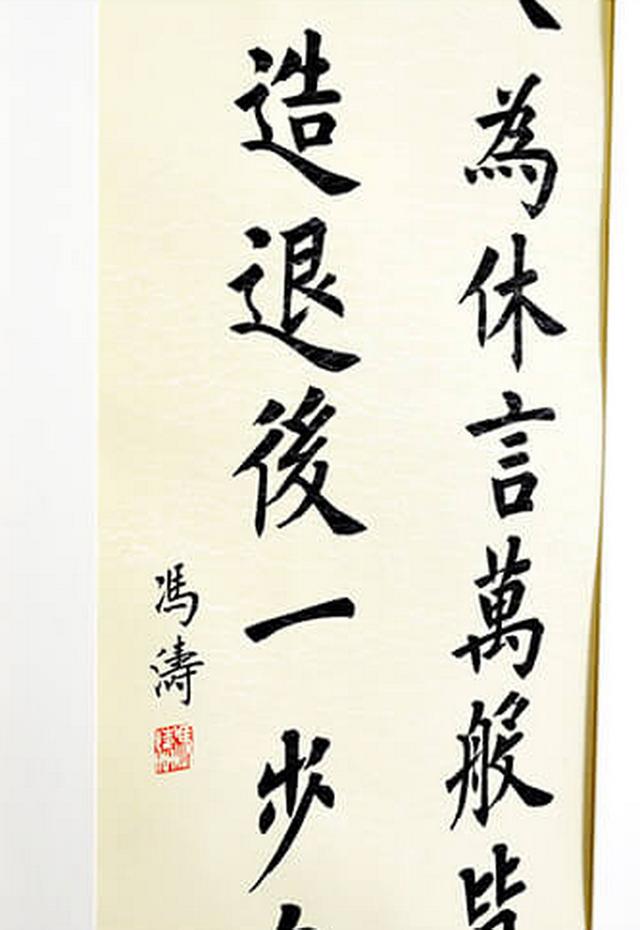 為休言萬般皆
造退後一步
馮濤